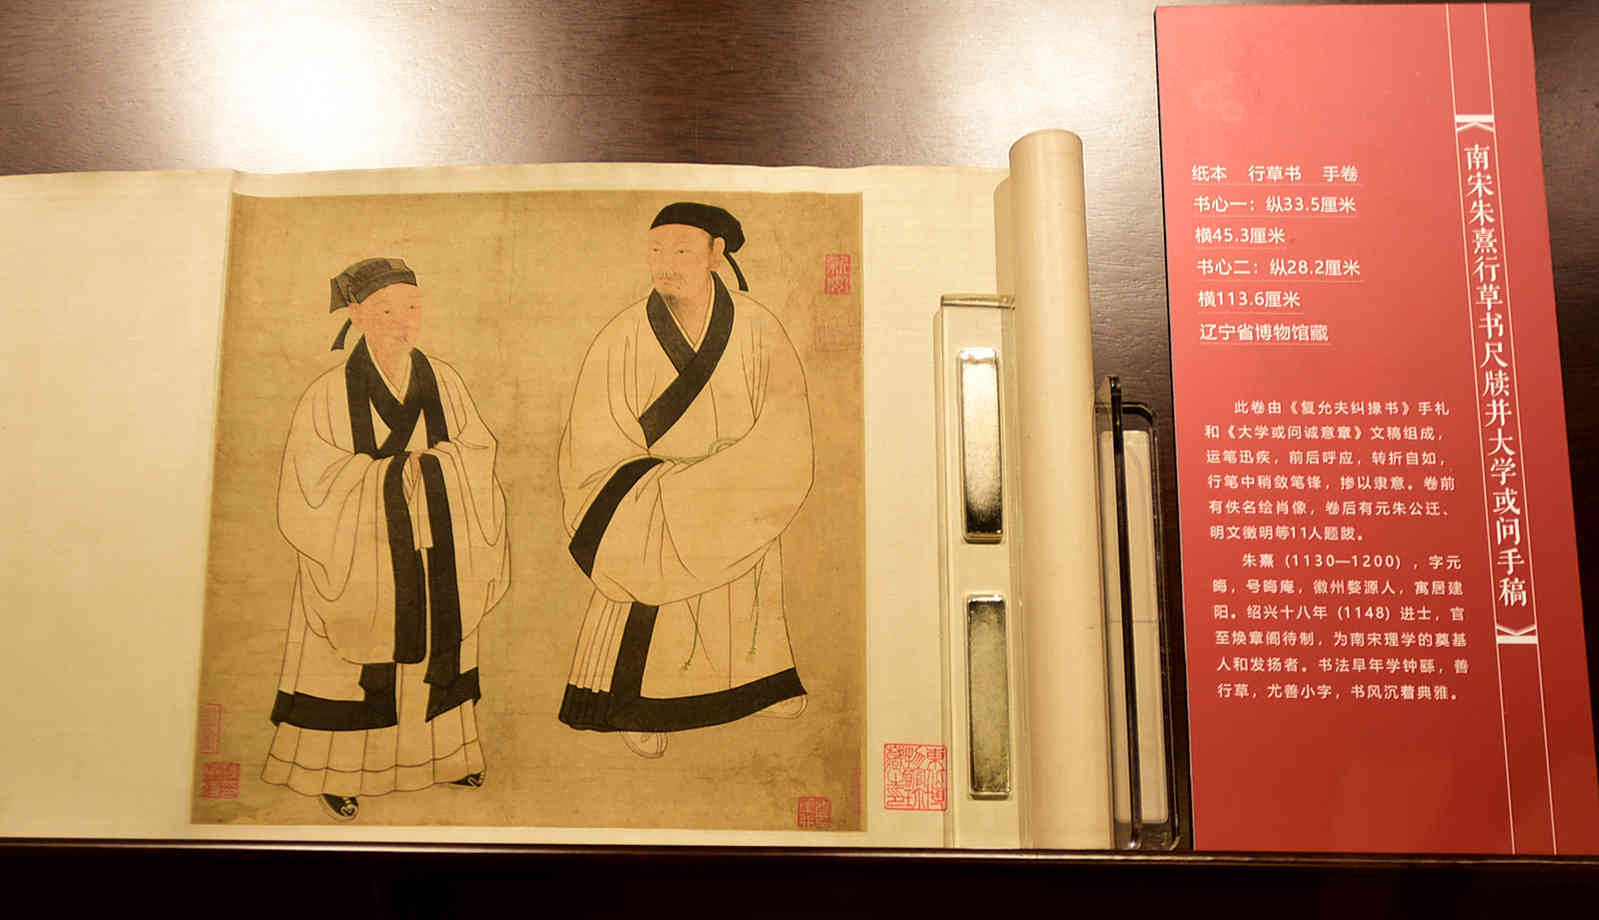 《南宋朱熹行草书尺牍并大学或问手稿》
纸本 行草书 手卷
书心一：纵33.5厘米
横45.3厘米
书心二：纵28.2厘米
横113.6厘米
辽宁省博物馆藏
此卷由《复允夫纠掾书》手札
和《大学或问诚意章》文稿组成，
运笔迅疾，前后呼应，转折自如，
行笔中稍敛笔锋，掺以隶意。卷前
有佚名绘肖像，卷后有元朱公迁、
明文徵明等11人题跋。
朱熹（1130—1200），字元
晦，号晦庵，徽州婺源人，寓居建
阳。绍兴十八年（1148）进士，官
至焕章阁待制，为南宋理学的奠基
人和发扬者。书法早年学钟繇，善
行草，尤善小字，书风沉着典雅。